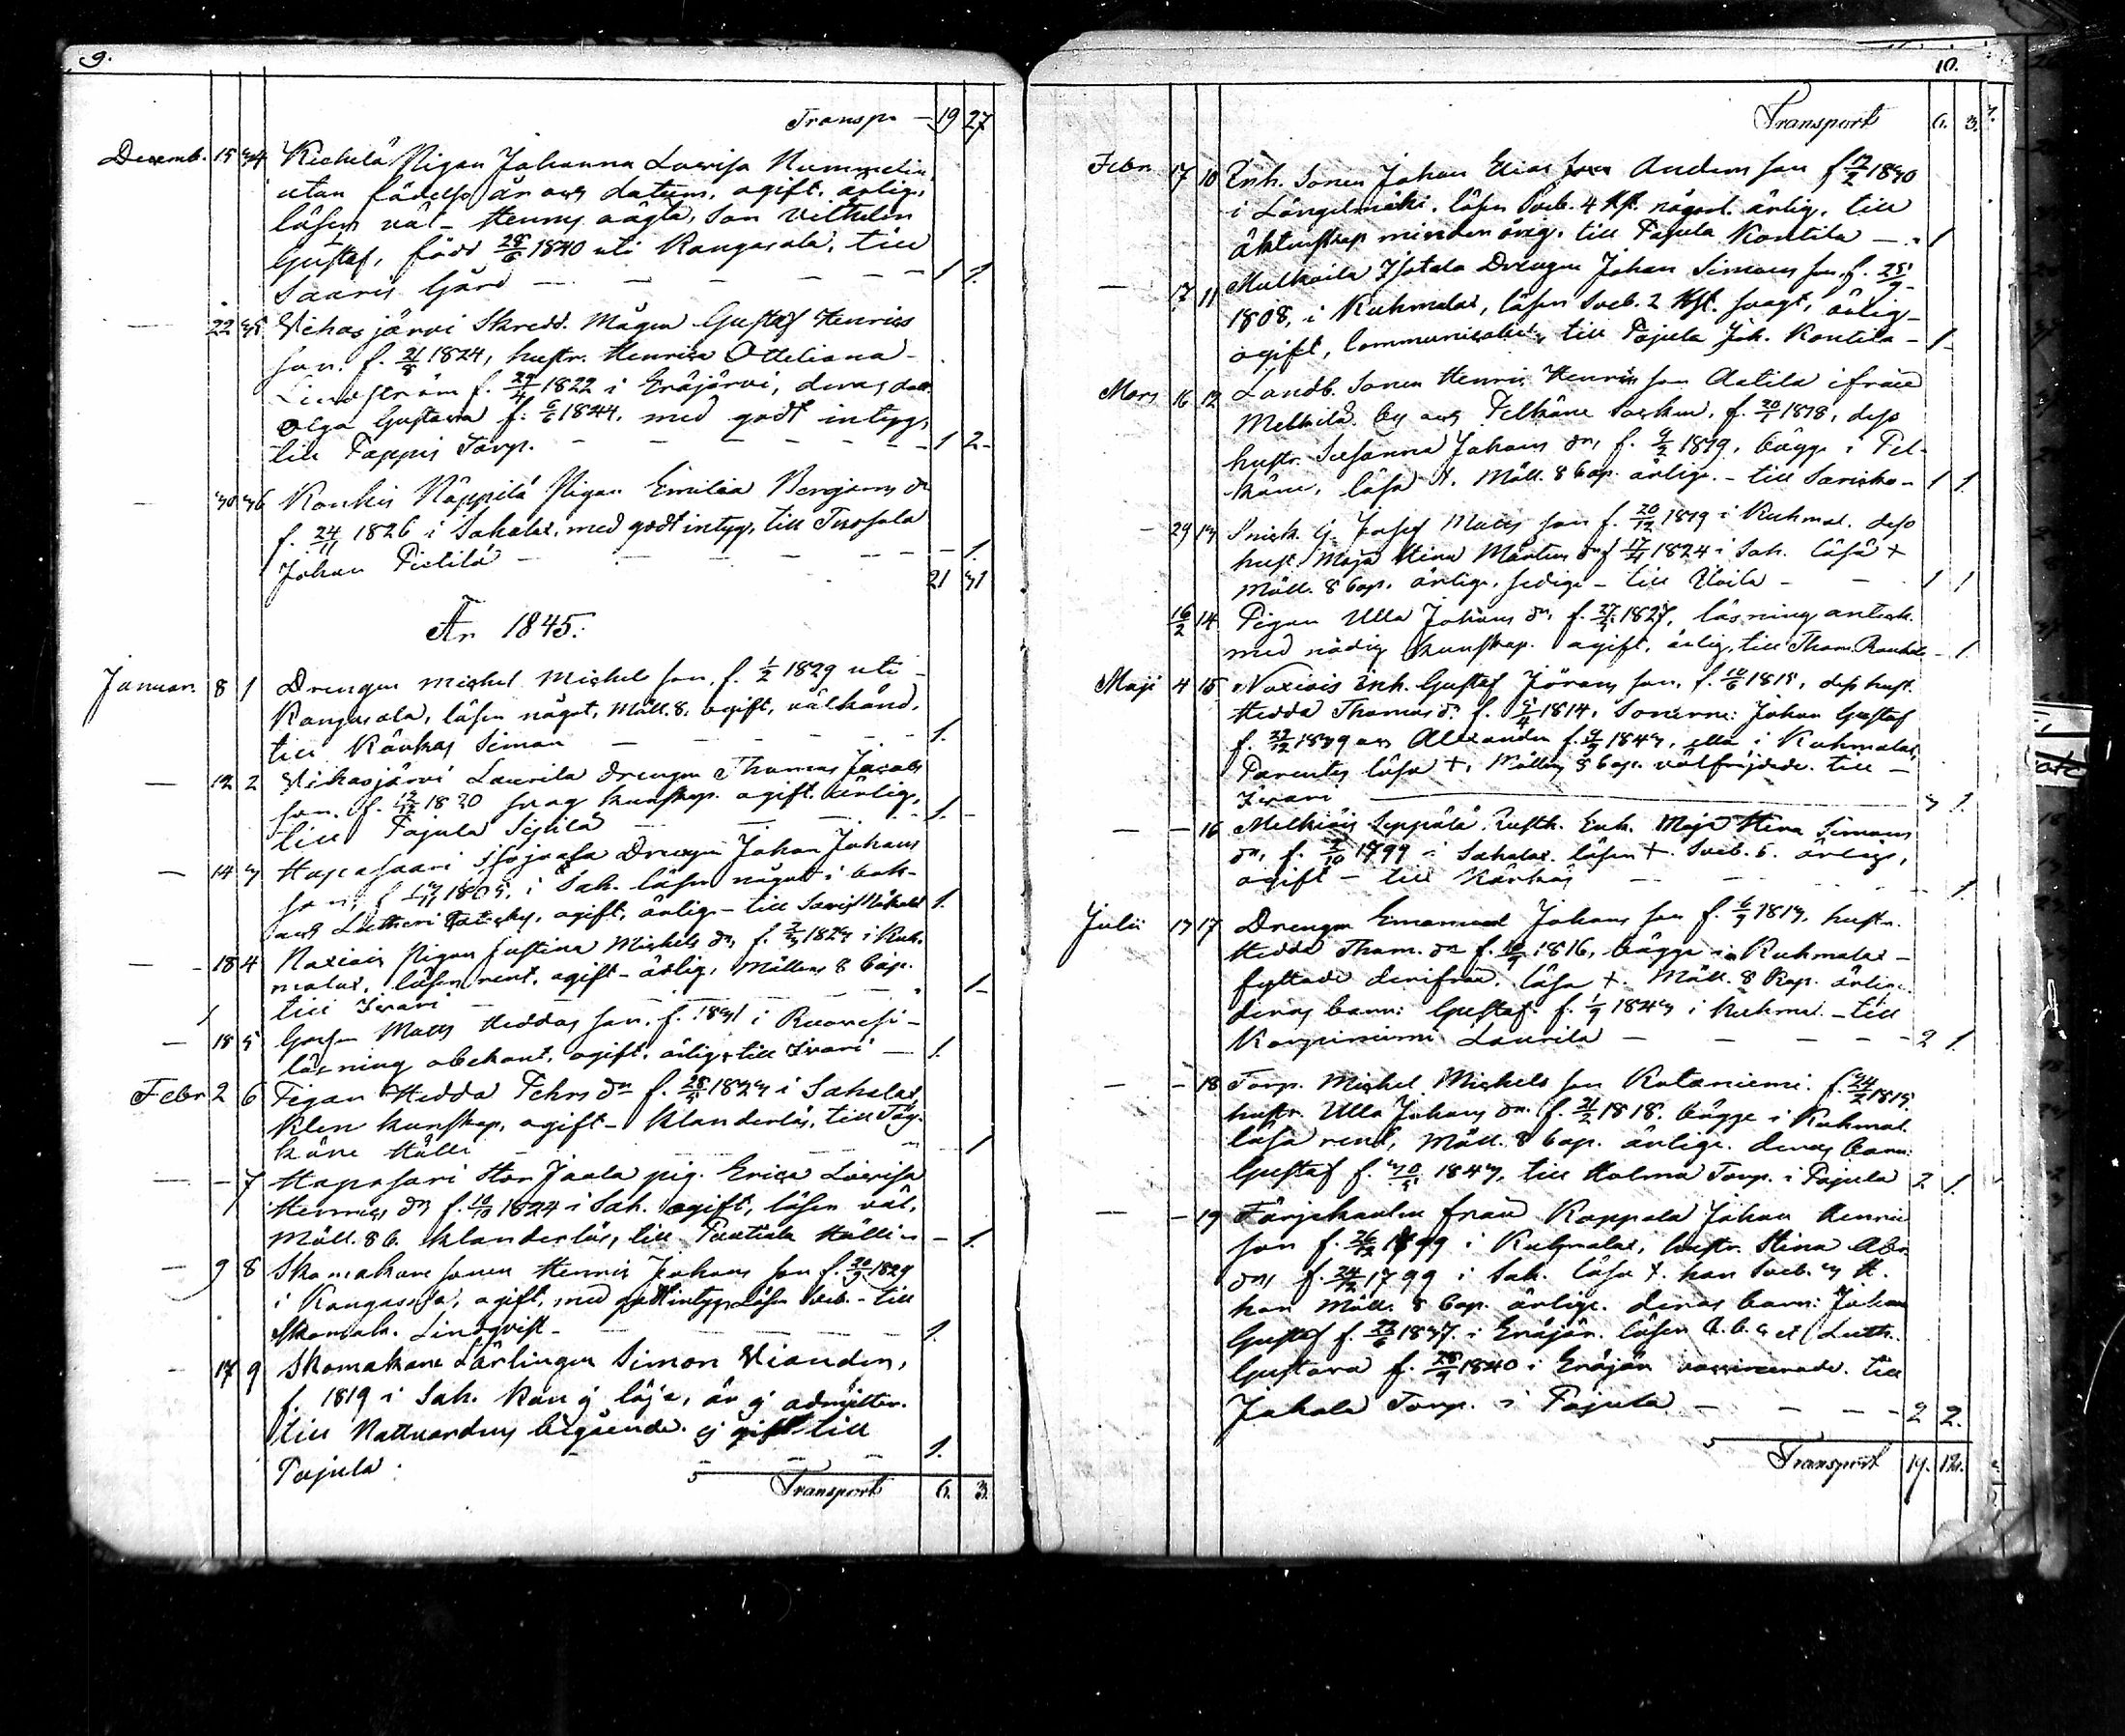 9.
Transp. — 19 27
Decemb. 15 34 Kickelä Pigan Johanna Lovisa Nummelin
utan födelse år och datum, ogift, ärlig,
läsen väl - Hennes oägta, Son Vilhelm
Gustaf, född 28/6 1840 uti Kangasala, till
Saaris Gård — — — — 1 1.
— 22 35 Vehasjärvi Skredd. Mågen Gustaf Henrics
son. f. 21/8 1824, hustr. Henrica Otteliana
Lindström f. 29/4 1822 i Eräjärvi, deras dott.
Olga Gustava f. 6/6 1844. med godt intyg,
till Pappis Torp. — — — — 1 2-
— 30 36 Kouhis Näppilä Pigan Emilia Benjams dr
f. 24/11 1826 i Sahalax, med godt intyg, till Tursola
Johan Pietilä — — — — 1.
21 31
År 1845.
Januar. 8 1 Drengen Michel Michels son, f. 1/2 1829 uti
Kangasala, läsen något, Möll. 8. ogift, välkänd,
till Simon — — — 1.
— 12 2 Vihasjärvi Laurila drengen Thomas Jacobs
son. f. 12/12 1820 svag kunskap. ogift. ärlig,
till Pajula — — 1. -
— 14 3 Hapasaari Drengen Johan Johans
son, i Sah. läsen något i bok
och Lutheri, ogift, ärlig - till 1.
— 18 4 Naxiais Pigan Justina Michels dr, f. 2/3 1823 i Kuh-
malax, läsen rent, ogift - ärlig, Möllers 8 Cap.
till Isvari — — — 1-
— 18 5 Gossen Matts Heddas son. f. 1831 i Ruovesi -
läsning obekant, ogift, ärlig, till Isvari — 1.
Febr 2 6 Pigan Hedda Fehrs dr f. 28/5 1823 i Sahalax,
klen kunskap, ogift - klanderlös, till
Hälli — — 1
— — 7 Hapasari Stor Jaala pig. Erica Lovisa
Henrics dr f. 16/10 1824 i Sah. ogift, läsen väl,
Möll. 8 C. klanderlös, till Pentiala Hälli — 1.
— 9 8 Skomakare sonen Henric Johans son f. 20/9 1829
i Kangasala, ogift, med godt intyg, Läsen Sveb. - till
Skomak. Lindqvist — — — 1.
— 17 9 Skomakare Lärlingen Simon Viander,
f. 1819 i Sah. kan ej läsa, är ej admitter.
till Nattvardens begående. ej gift till
Pajula. — — — 1.
Transport 6. 3.
10.
Transport 6. 3.
Febr 17 10 Enh. Sonen Johan Elias Anders son f 12/2 1830
i Längelmäki, läsen Sveb. 4 Hst. någorl. ärlig, till
äktenskap mindre årig. till Pajula Kontila — 1
— 17 11 Mulkoila Isotalo Drengen Johan Simons son, f. 25/9
1808, i Kuhmalax, läsen Sveb. 2 Hst. svagt, ärlig -
ogift, till Pajula Joh. Kontila - 1-
Mars 16 12 Landb. Sonen Henric Henrics son Aatila ifrån
by och Pelkäne Socken, f. 20/1 1818, dess
hustr. Susanna Johans dr, f. 9/2 1819, bägge i Pel-
käne, läsa X. Möll. 8 Cap. ärlige. - till Sarisko - 1 1.
— 29 13 Snick. G. Josef Matts son f. 20/12 1819 i Kuhmal. dess
hust. Maja Stina Mårtens dr f 17/4 1824 i Sah. läsa +
Möll. 8 Cap. ärlige, sedige - till Uoila - — 1 1
16/2 14 Pigan Ulla Johans dr, f. 27/4 1827, läsning
med nödig kunskap. ogift, ärlig, till Thom. — 1.
Maji 4 15 Naxiais Enh. Gustaf Jörans son, f. 10/6 1815, dess hust.
Hedda Thomas dr. f. 5/4 1814. Sönerne: Johan Gustaf
f. 27/12 1839 och Alexander f. 9/9 1843, alla i Kuhmalax,
Parentes läsa +, Möllers 8 Cap. välfrejdade. till —
Isvari — 3 1.
— — 16 Melkiäis Seppälä Enk. Maja Stina Simons
dr, f. 2/10 1799 i Sahalax. läsen +. Sveb. 6. ärlig,
ogift - till — — — 1.
Julii 13 17 Drengen Emanuel Johans son f. 6/9 1813, hustr.
Hedda Thom. dr f. 10/9 1816, bägge i Kuhmalax -
flyttade derifrån, läsa +. Möll. 8 Kap. ärlige.
deras barn: Gustaf f. 1/9 1843 i Kuhmal. - till
Korpiniemi Laurila — — — — 2 1.
— — 18 Torp. Michel Michels son Kotaniemi. f. 24/2 1815.
hustr. Ulla Johans dr. f. 21/2 1818. bägge i Kuhmal.
läsa rent, Möll. 8 Cap. ärlige. deras barn:
Gustaf f. 30/5 1843, till Holma Torp. i Pajula 2 1.
— — 19 Färgekarlen från Kappala Johan Henric
son f. 26/12 1799 i Kuhmalax, hustr. Stina Abr.
dr, f. 24/2 1799 i Sah. läsa +. han Sveb. 3 H.
hon Möll. 8 Cap. ärlige. deras barn: Johan
Gustaf f. 23/6 1837 i Eräjär. läsen A.B.C. et Luth.
Gustava f. 28/9 1840 i Eräjär vaccinerade. till
Jahala Torp. i Pajula — — — — 2 2.
Transport 19. 12.